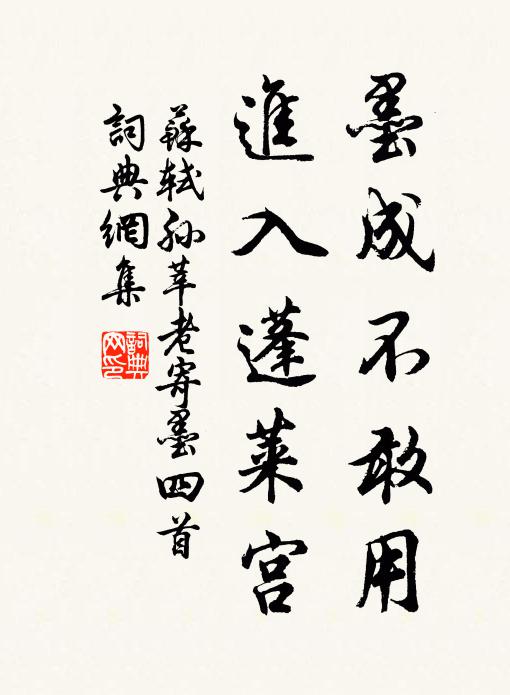 墨成不敢用
進入蓬萊宮
蘇軾孫莘老寄墨四首
詞典網集
詞典網印